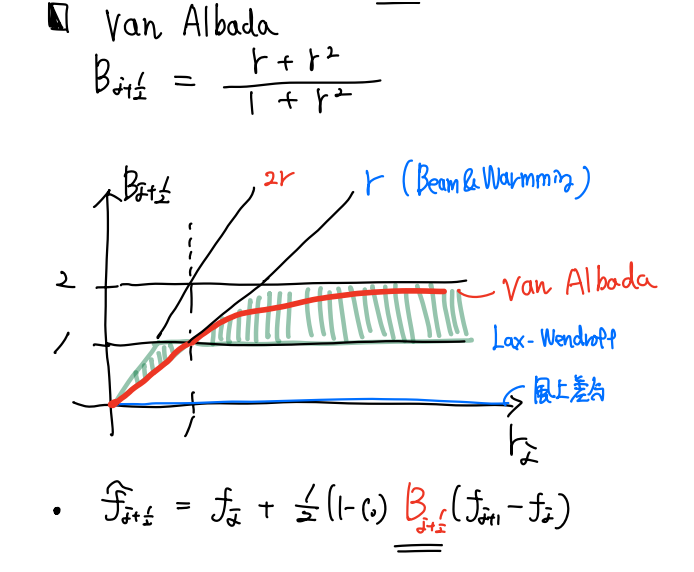 Van Albada
B_{j+1/2} = (r + r²) / (1 + r²)
B_{j+1/2}
2r
r (Beam & Warmming)
2
Van Albada
1
Lax-Wendroff
風上差分
1
r_j
• f̂_{j+1/2} = f_j + 1/2 (1-C₀) B_{j+1/2} (f_{j+1} - f_j)